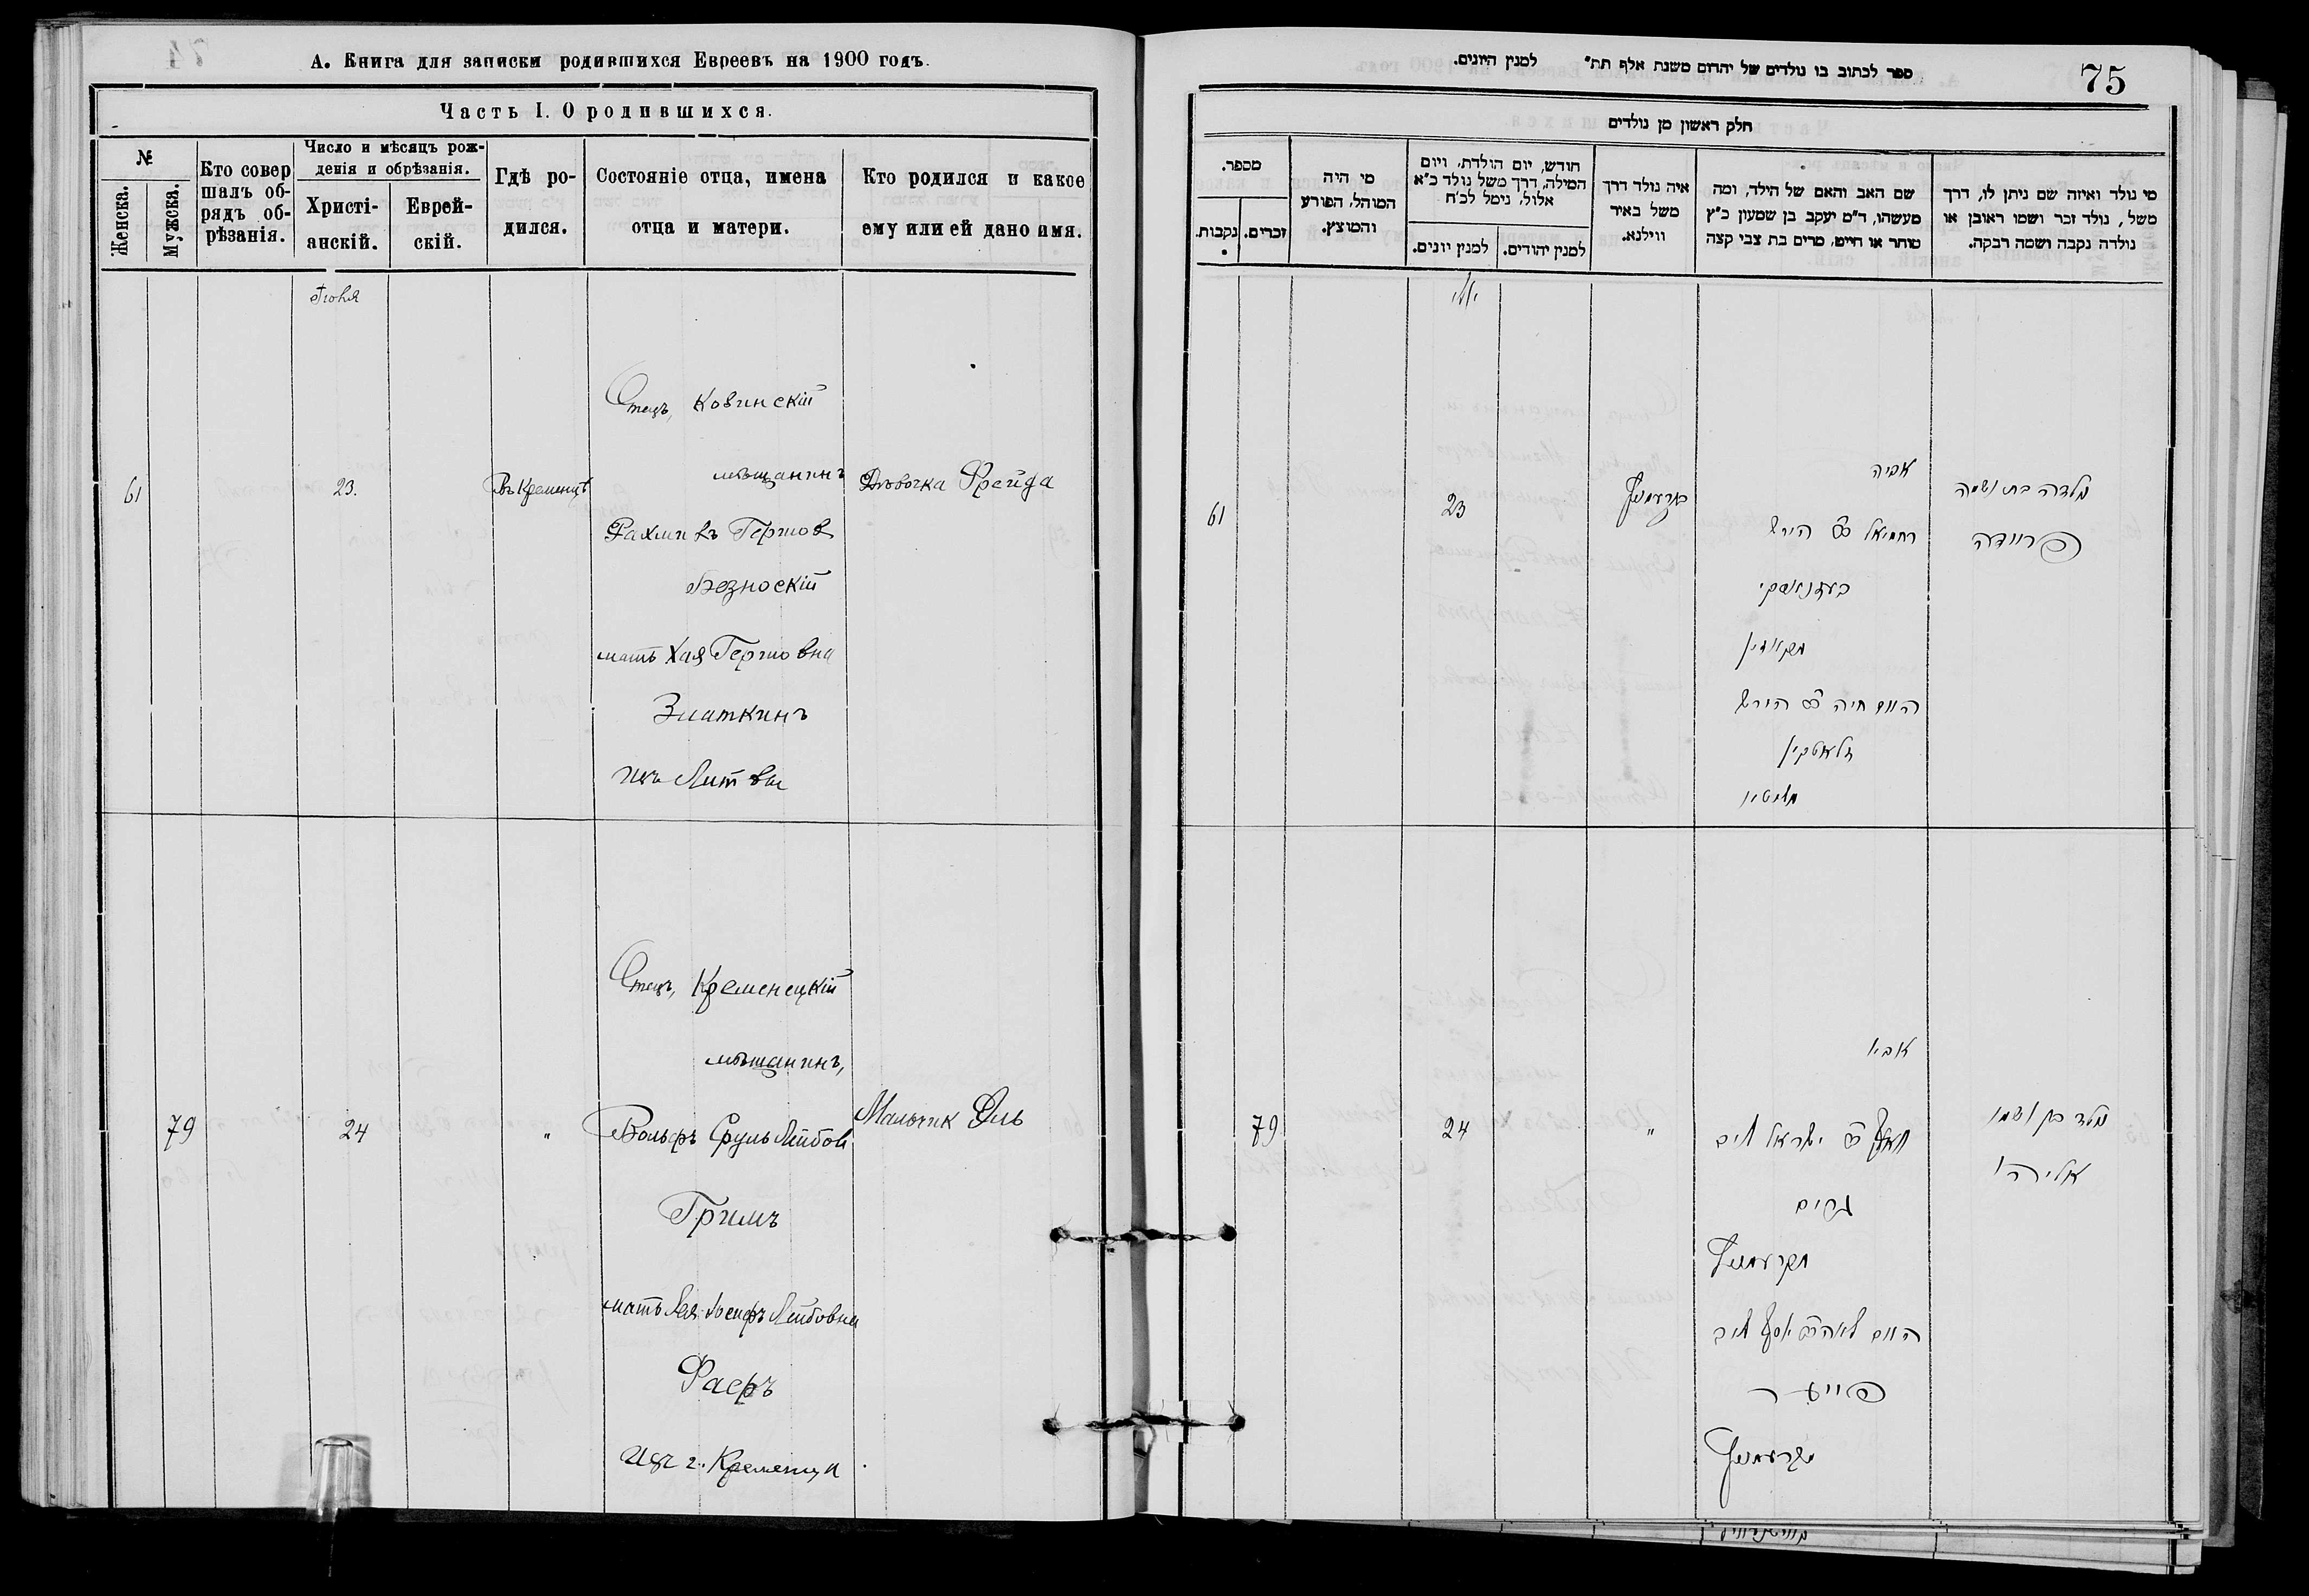 А. Книга для записки родившихся Евреевъ на 1900 годъ.
Часть I. О родившихся.
№
Женска.
Мужска.
Кто совер
шалъ об-
рядъ об-
рѣзанія.
Число и мѣсяцъ рож-
денія и обрѣзанія.
Христі-
анскій.
Еврей-
скій.
Гдѣ ро-
дился.
Состояніе отца, имена
отца и матери.
Кто родился и какое
ему или ей дано имя.
Іюня
61
23.
Въ Кременцѣ
Отецъ, Ковинскій
мѣщанинъ
Рахмиель Гершов
Безноскій
мать Хая Гершовна
Златкинъ
изъ Литвы
Дѣвочка Фрейда
79
24
"
Отецъ, Кременецкій
мѣщанинъ,
Вольфъ Сруль Лейбов
Гримъ
мать Лея Іосифъ Лейбовна
Фаеръ
изъ г. Кременца
Мальчик Эль
75
ספר לכתוב בו נולדים של יהדום משנת אלף תת״ למנין היונים.
חלק ראשון מן נולדים
מספר.
נקבות.
זכרים.
מי היה
המוהל, הפורע
והמוצץ.
חודש, יום הולדת, ויום
המילה, דרך משל נולד כ״א
אלול, נימל לכ״ח
למנין יונים.
למנין יהודים.
איה נולד דרך
משל באיר
ווילנא.
שם האב והאם של הילד, ומה
מעשהו, ד״מ יעקב בן שמעון כ״ץ
סוחר או חייט, מרים בת צבי קצה
מי נולד ואיזה שם ניתן לו, דרך
משל, נולד זכר ושמו ראובן או
נולדה נקבה ושמה רבקה.
יוני
61
23
קרעמניץ
אביה
רחמיאל ב״ר הירש
בעזנאסקי
מקאוונין
האם חיה ב״ר הירש
זלאטקין
מליטין
נולדה בת ושמה
פריידה
79
24
"
אביו
וואלף ב״ר ישראל ליב
גרים
מקרעמניץ
האם לאה ב״ר יוסף ליב
פייער
מקרעמניץ
נולד בן ושמו
אליהו